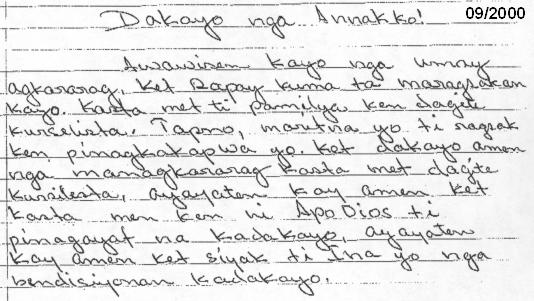 09/2000
Dakayo nga Annakko!
Awawisen kayo nga umay
agkararag, ket Rapay kuma ta maragsakan
kayo. Kasta met ti pamilya ken dagiti
kurselista. Tapno, marikna yo ti ragsak
ken pinagkakapwa yo. Ket dakayo amen
nga managkararag kasta met dagite
Kursilesta, ayayaten kay amen ket
kasta men ken ni Apo Dios ti
pinagayat na kadakayo, ayayaten
kay amen ket siyak ti Ina yo nga
bendisiyonan kadakayo.